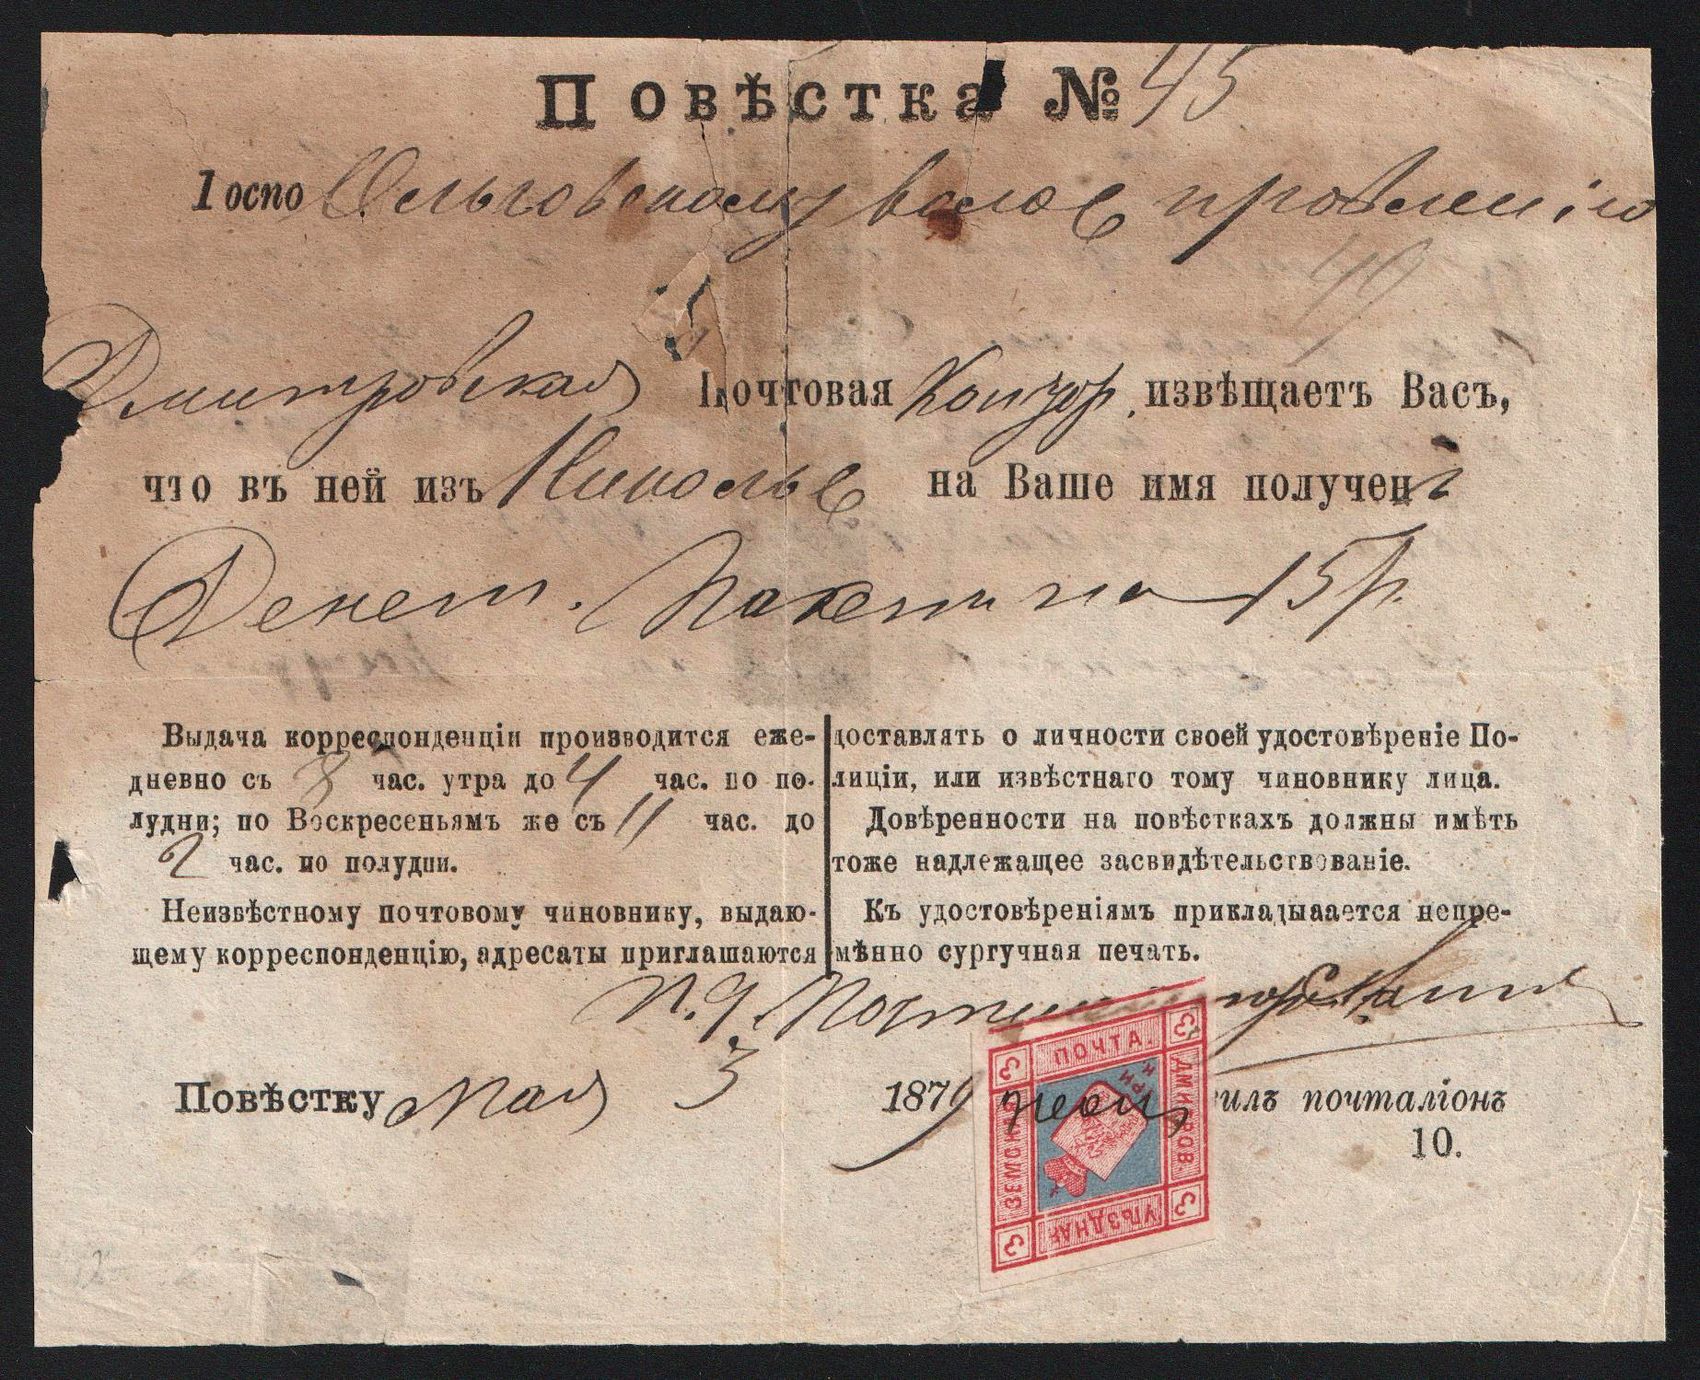 Повѣстка № 45
Госпо Ольговскому волос правленію
49
Дмитровская Почтовая Контор. извѣщаетъ Васъ,
что въ ней изъ Никольс на Ваше имя полученъ
Денеж. Пакетъ на 15 р.
Выдача корреспонденціи производится еже-
дневно съ 8 час. утра до 4 час. по по-
лудни; по Воскресеньямъ же съ 11 час. до
2 час. по полудни.
Неизвѣстному почтовому чиновнику, выдаю-
щему корреспонденцію, адресаты приглашаются
доставлять о личности своей удостовѣреніе По-
лиціи, или извѣстнаго тому чиновнику лица.
Довѣренности на повѣсткахъ должны имѣть
тоже надлежащее засвидѣтельствованіе.
Къ удостовѣреніямъ прикладываается непре-
мѣнно сургучная печать.
П. д.
Повѣстку Мая 3 1879 илъ почталіонъ
10.
3 ПОЧТА. 3
ЗЕМСКАЯ
ДМИТРОВ.
3 УѢЗДНАЯ 3